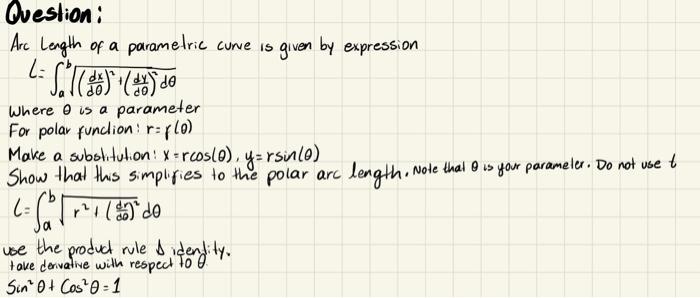 Question:
Arc Length of a parametric curve is given by expression
L= ∫ₐᵇ √((dx/dθ)² + (dy/dθ)²) dθ
Where θ is a parameter
For polar function: r=f(θ)
Make a substitution: x=rcos(θ), y=rsin(θ)
Show that this simplifies to the polar arc length. Note that θ is your parameter. Do not use t
L= ∫ₐᵇ √(r² + (dr/dθ)²) dθ
use the product rule & identity.
take derivative with respect to θ
Sin²θ + Cos²θ = 1